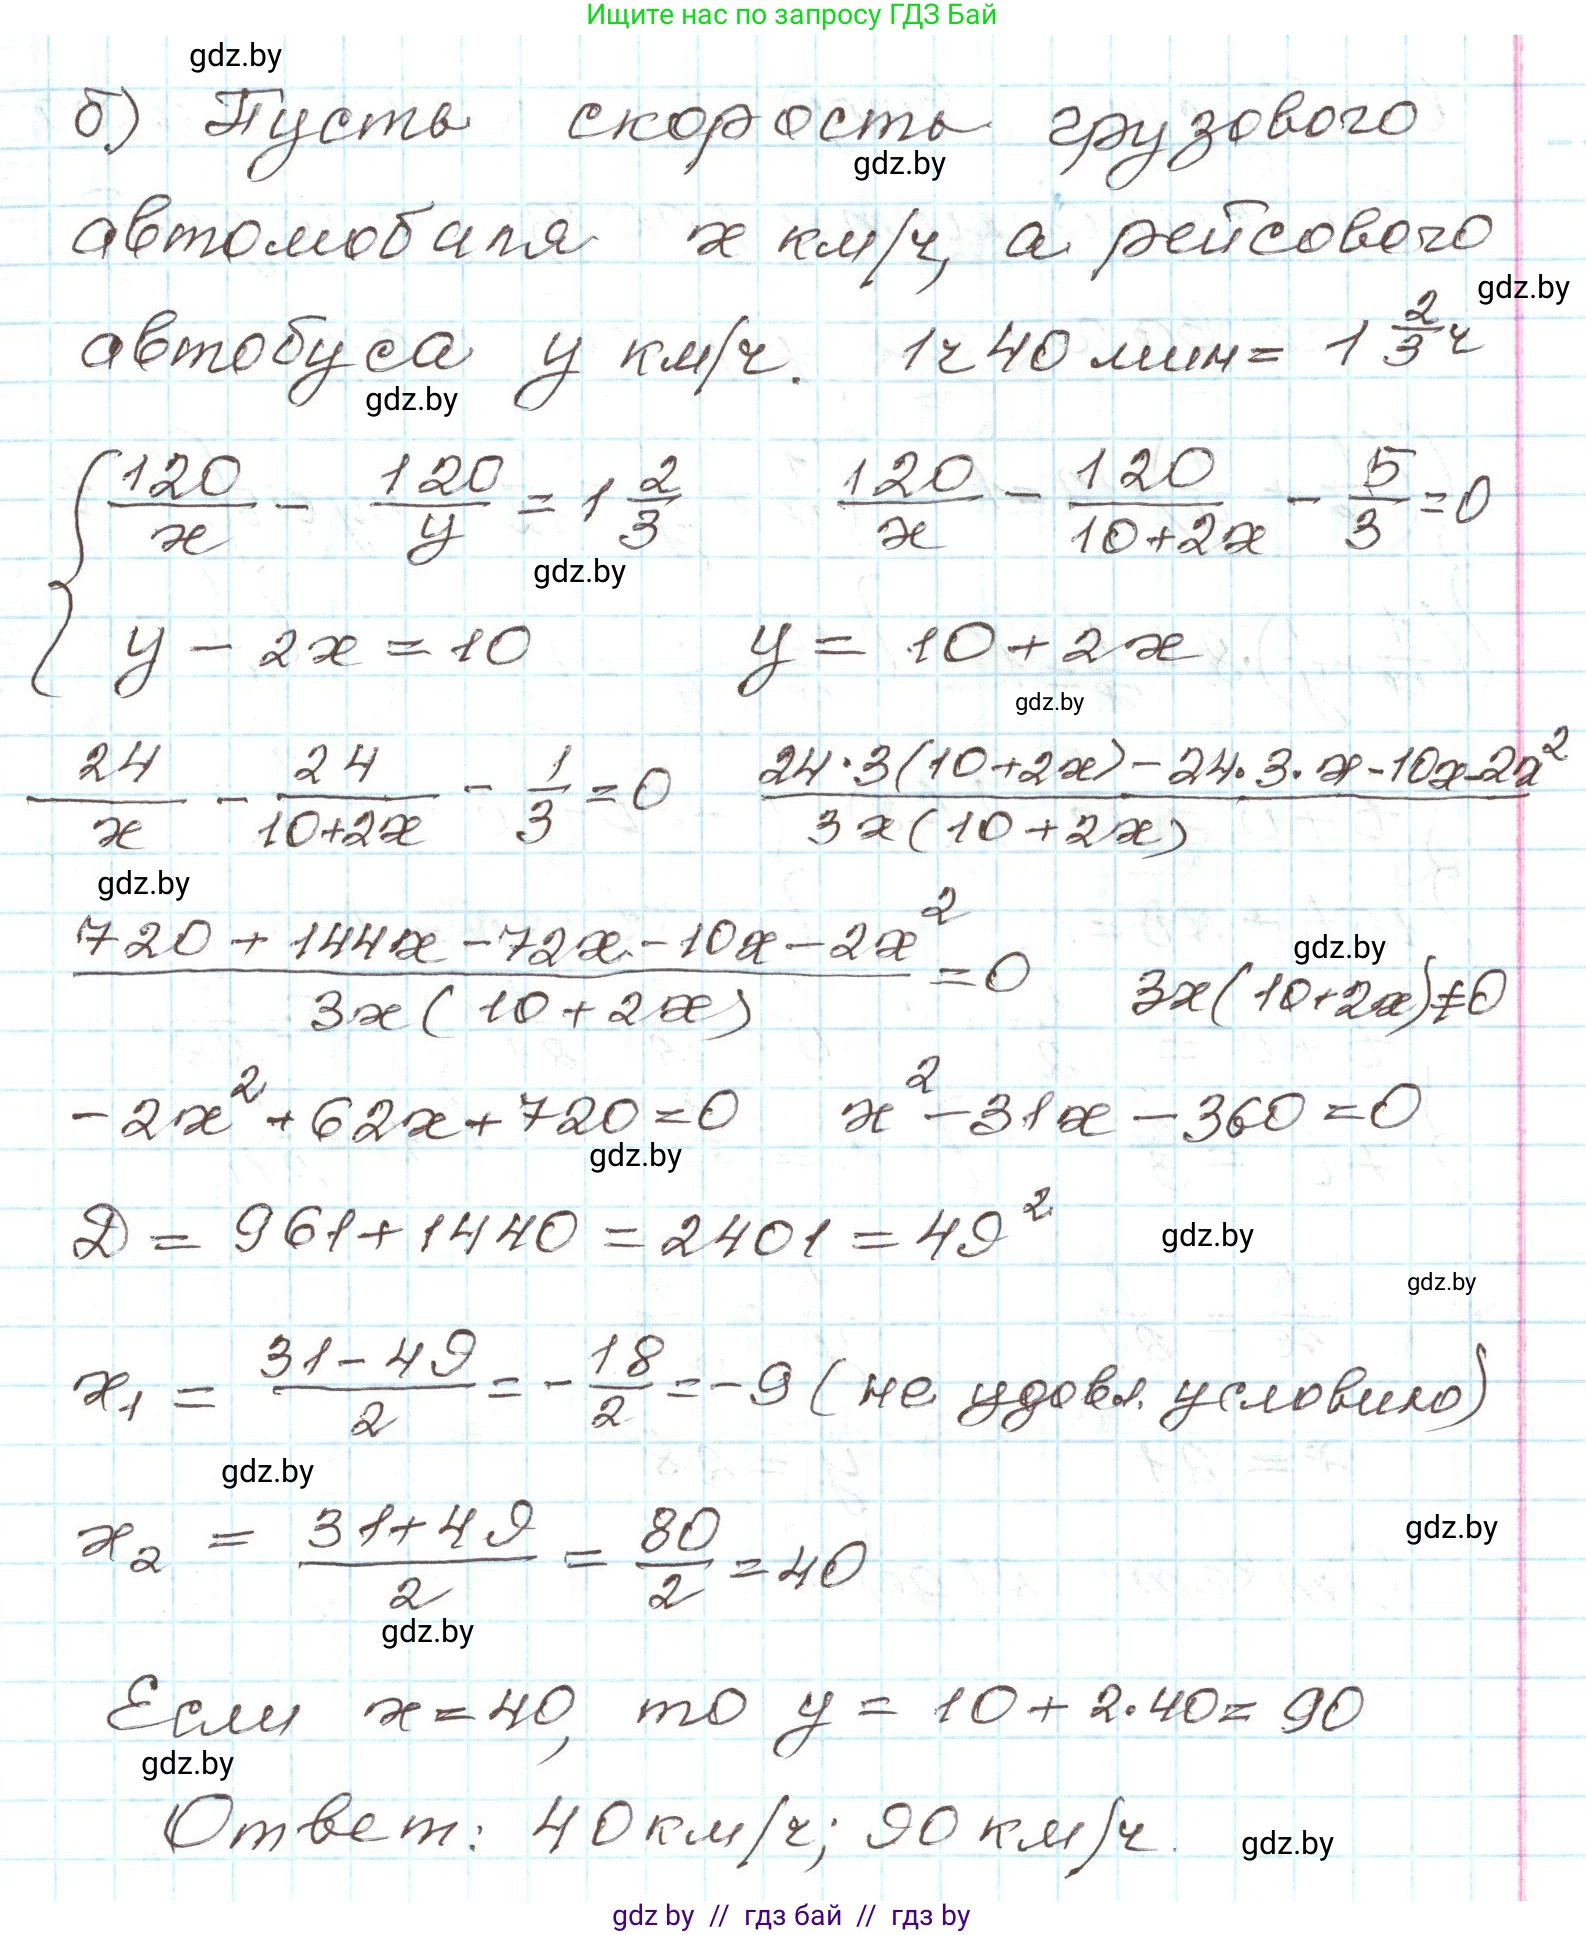 Ищите нас по запросу ГДЗ Бай
gdz.by
б) Пусть скорость грузового
gdz.by
автомобиля x км/ч, а рейсового
gdz.by
автобуса y км/ч. 1ч 40 мин = 1 2/3 ч
gdz.by
{ 120/x - 120/y = 1 2/3    120/x - 120/(10+2x) - 5/3 = 0
gdz.by
y - 2x = 10    y = 10 + 2x
gdz.by
24/x - 24/(10+2x) - 1/3 = 0    (24·3(10+2x) - 24·3·x - 10x - 2x²)/(3x(10+2x))
gdz.by
(720 + 144x - 72x - 10x - 2x²)/(3x(10+2x)) = 0    3x(10+2x) ≠ 0
gdz.by
-2x² + 62x + 720 = 0    x² - 31x - 360 = 0
gdz.by
D = 961 + 1440 = 2401 = 49²
gdz.by
gdz.by
x₁ = (31 - 49)/2 = -18/2 = -9 (не удовл. условию)
gdz.by
x₂ = (31 + 49)/2 = 80/2 = 40
gdz.by
gdz.by
Если x = 40, то y = 10 + 2·40 = 90
gdz.by
Ответ: 40 км/ч; 90 км/ч.
gdz.by
gdz by // гдз бай // гдз by